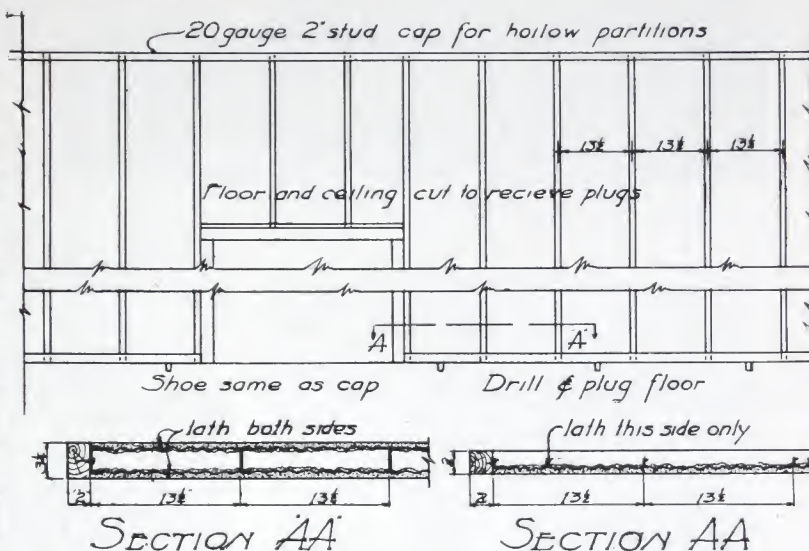 20 gauge 2" stud cap for hollow partitions
13½ 13½ 13½
Floor and ceiling cut to recieve plugs
A A
Shoe same as cap Drill & plug floor
lath both sides
lath this side only
2 13½ 13½
2 13½ 13½
SECTION "AA"
SECTION AA